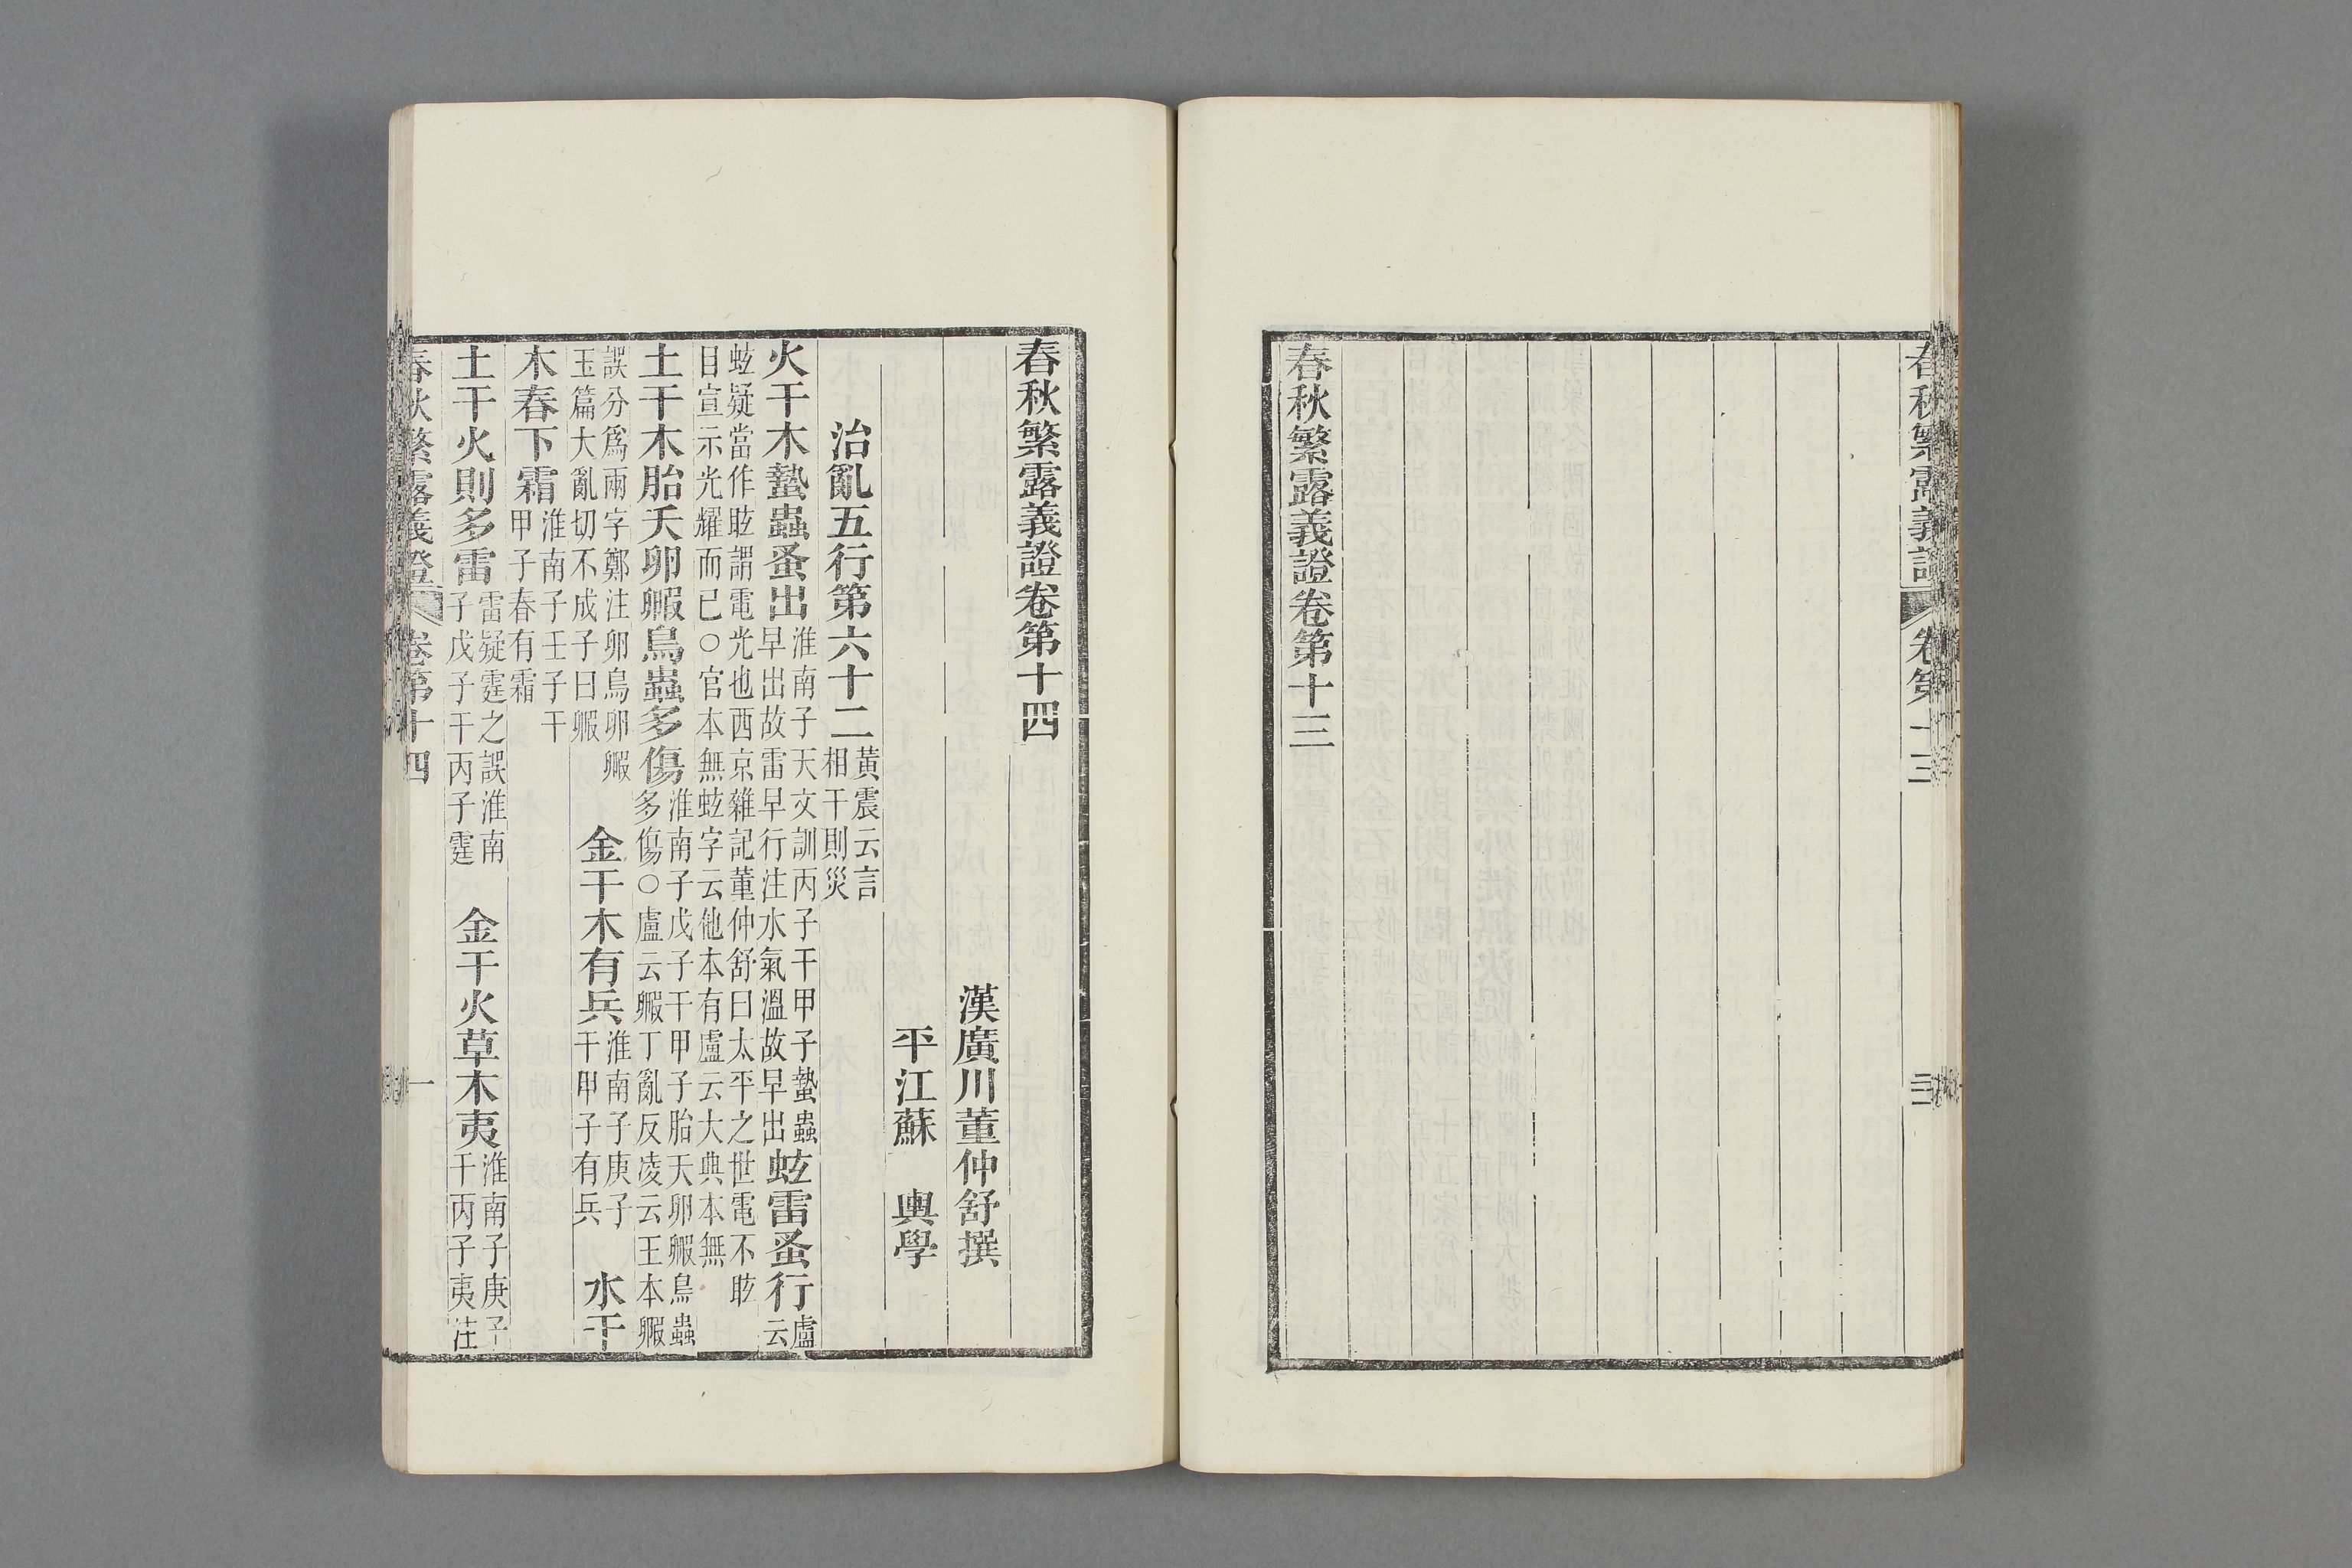 春秋繁露義證卷第十三
春秋繁露義證卷第十四
漢廣川董仲舒撰
平江蘇　輿學
治亂五行第六十二
黃震云言
相干則災
火干木蟄蟲蚤出
淮南子天文訓丙子干甲子蟄蟲
早出故雷早行注水氣溫故早出
蚿雷蚤行
盧
云
蚿疑當作眩謂電光也西京雜記董仲舒曰太平之世電不眩
目宣示光耀而已○官本無蚿字云他本有盧云大典本無
土干木胎夭卵毈鳥蟲多傷
淮南子戊子干甲子胎夭卵毈鳥蟲
多傷○盧云毈丁亂反凌云王本毈
誤分爲兩字鄭注卵鳥卵毈
玉篇大亂切不成子曰毈
金干木有兵
淮南子庚子
干甲子有兵
水干
木春下霜
淮南子壬子干
甲子春有霜
土干火則多雷
雷疑霆之誤淮南
子戊子干丙子霆
金干火草木夷
淮南子庚子
干丙子夷注
春秋繁露義證
卷第十四
一